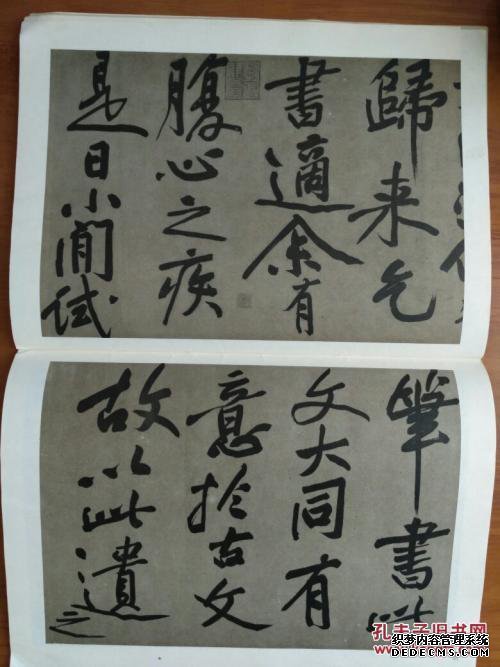 歸来乞
書適余有
腹心之疾
是日小閒試
筆書此
文大同有
意於古文
故以此遺
之
孔夫子旧书网
织梦内容管理系统
DEDECMS.COM